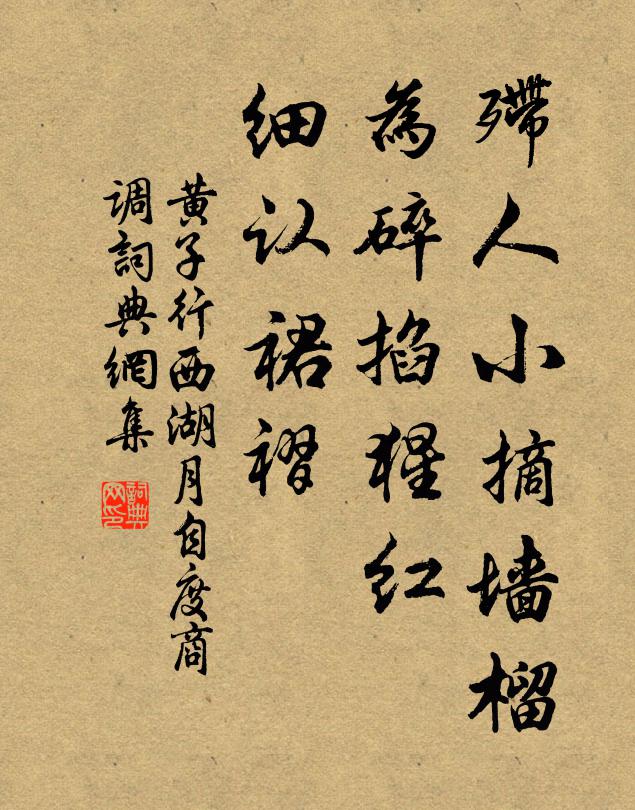 殢人小摘墙榴
為碎掐猩红
细认裙褶
黄子行西湖月自度商
调詞典網集
詞典网印